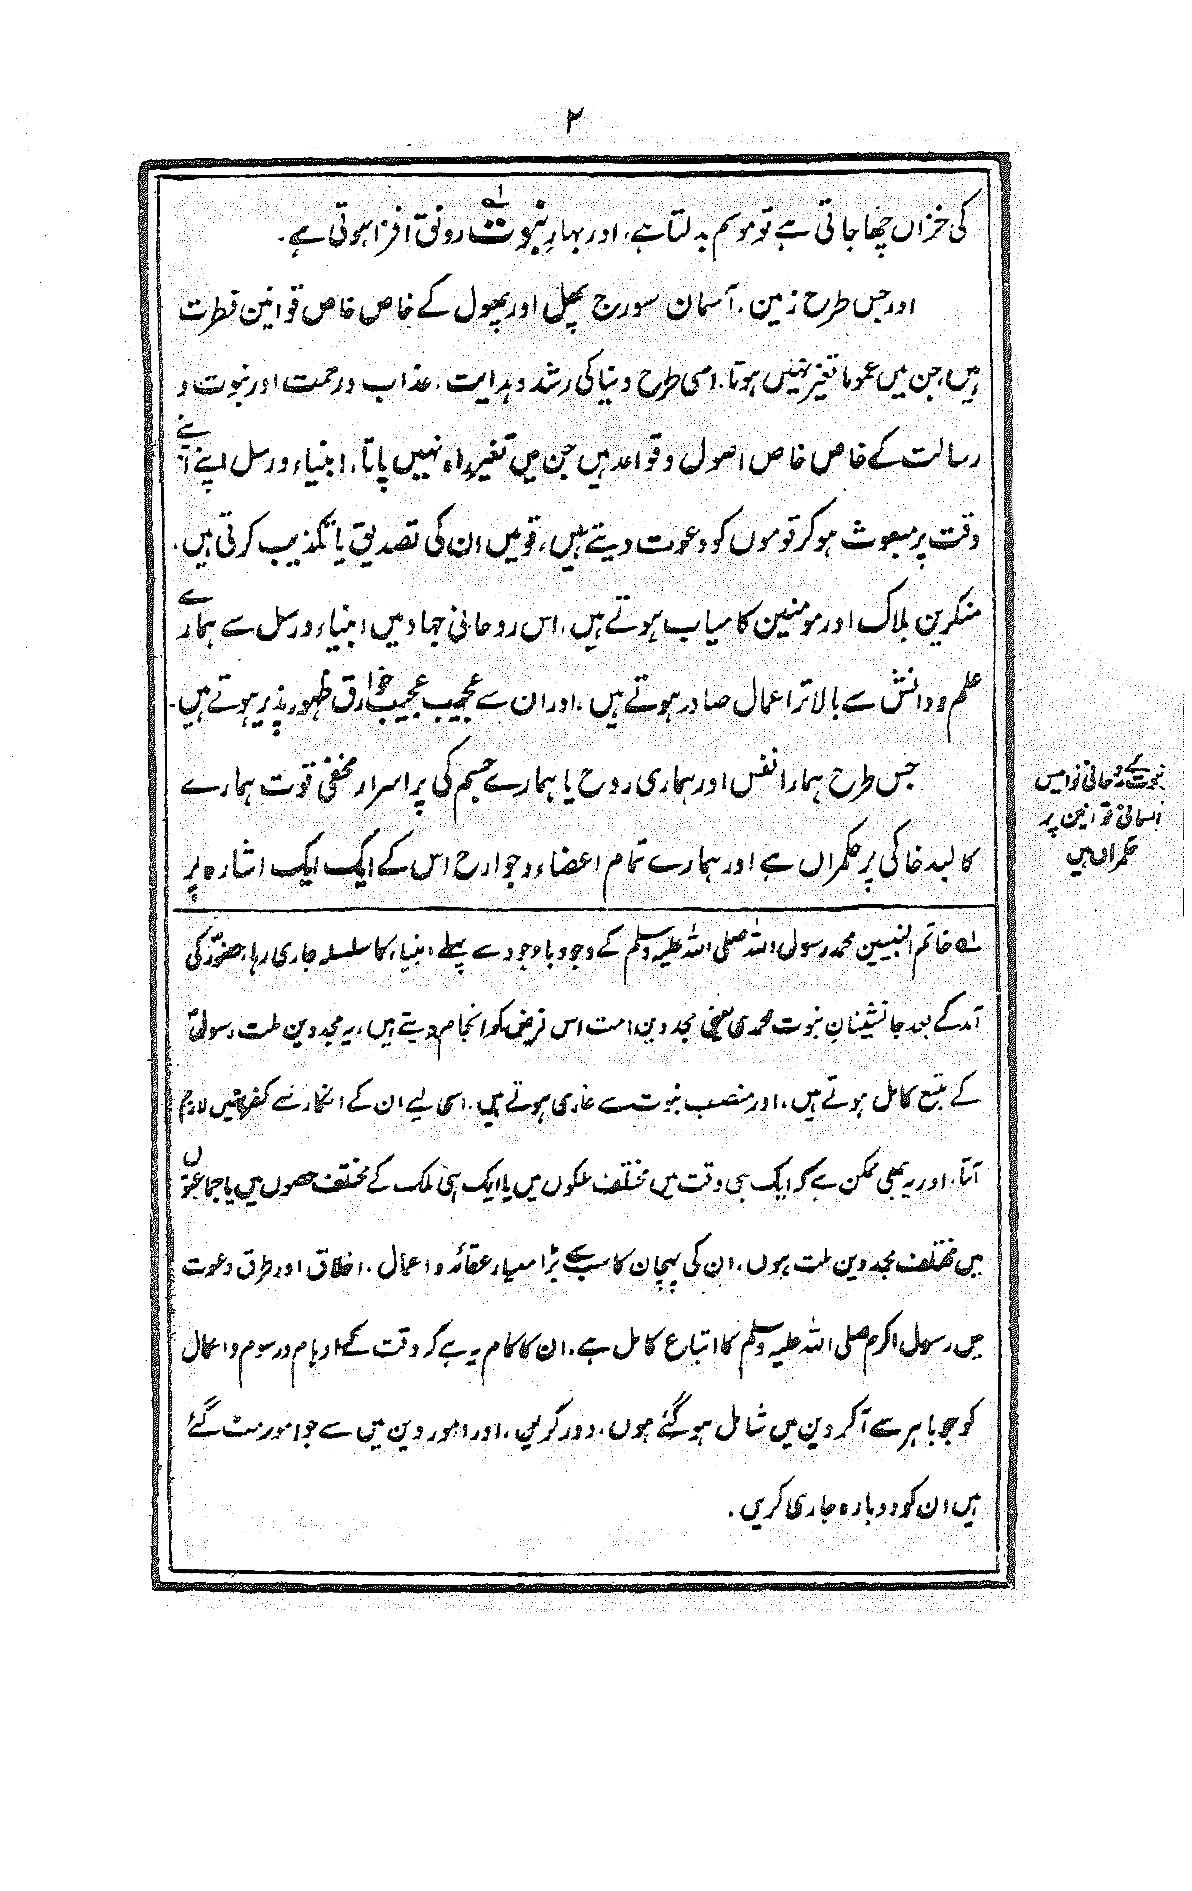 ۲
کی خزاں چھا جاتی ہے تو موسم بدلتا ہے، اور بہارِ نبوت لہ رونق افزا ہوتی ہے۔
اور جس طرح زمین، آسمان سورج پھل اور پھول کے خاص خاص قوانین فطرت
ہیں، جن میں عموماً تغیر نہیں ہوتا، اسی طرح دنیا کی رشد و ہدایت، عذاب و رحمت اور نبوت و
رسالت کے خاص خاص اصول و قواعد ہیں جن میں تغیر راہ نہیں پاتا، انبیاء و رسل اپنے اپنے
وقت پر مبعوث ہو کر قوموں کو دعوت دیتے ہیں، قومیں ان کی تصدیق یا تکذیب کرتی ہیں۔
منکرین ہلاک اور مومنین کامیاب ہوتے ہیں، اس روحانی جہاد میں انبیاء و رسل سے ہمارے
علم و دانش سے بالاتر اعمال صادر ہوتے ہیں، اور ان سے عجیب عجیب خوارق ظہور پذیر ہوتے ہیں۔
جس طرح ہمارا نفس اور ہماری روح یا ہمارے جسم کی پراسرار مخفی قوت ہمارے
کالبد خاکی پر حکمراں ہے اور ہمارے تمام اعضاء و جوارح اس کے ایک ایک اشارہ پر
نبوت کے روحانی نوامیس
آسمانی قوانین پر
حکمراں ہیں
لہ خاتم النبیین محمد رسول اللہ صلی اللہ علیہ وسلم کے وجود باوجود سے پہلے انبیاء کا سلسلہ جاری رہا، حضورؐ کی
آمد کے بعد جانشینانِ نبوت محمدی یعنی مجددینِ امت اس فرض کو انجام دیتے ہیں، یہ مجددین ملت رسولؐ
کے متبع کامل ہوتے ہیں، اور منصب نبوت سے عاری ہوتے ہیں۔ اسی لیے ان کے انکار سے کفر نہیں لازم
آتا، اور یہ بھی ممکن ہے کہ ایک ہی وقت میں مختلف ملکوں میں یا ایک ہی ملک کے مختلف حصوں میں یا جماعتوں
میں مختلف مجددین ملت ہوں، ان کی پہچان کا سب سے بڑا معیار عقائد و اعمال، اخلاق اور طرق دعوت
میں رسول اکرم صلی اللہ علیہ وسلم کا اتباع کامل ہے، ان کا کام یہ ہے کہ وقت کے اوہام و رسوم و اعمال
کو جو باہر سے آکر دین میں شامل ہو گئے ہوں، دور کریں، اور امور دین میں سے جو امور مٹ گئے
ہیں ان کو دوبارہ جاری کریں۔